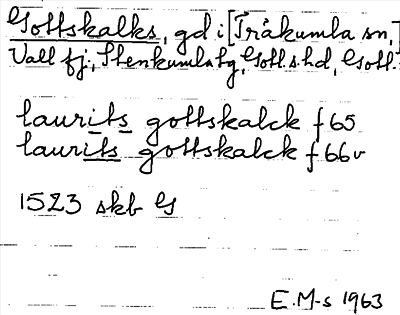 Gottskalks, gd i [Träkumla sn,]
Vall fj, Stenkumla tg, Gotl. s. hd, Gotl.
laurits gottskalck f 65
laurits gottskalck f 66v
1523 skb G
E.M-s 1963